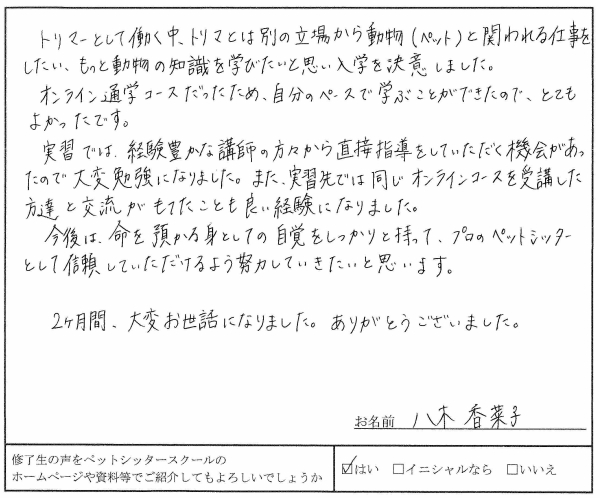 トリマーとして働く中、トリマとは別の立場から動物(ペット)と関われる仕事を
したい、もっと動物の知識を学びたいと思い入学を決意しました。
オンライン通学コースだったため、自分のペースで学ぶことができたので、とても
よかったです。
実習では、経験豊かな講師の方々から直接指導をしていただく機会があっ
たので大変勉強になりました。また、実習先では同じオンラインコースを受講した
方達と交流がもてたことも良い経験になりました。
今後は、命を預かる身としての自覚をしっかりと持って、プロのペットシッター
として信頼していただけるよう努力していきたいと思います。
2ヶ月間、大変お世話になりました。ありがとうございました。
お名前 八木 香菜子
修了生の声をペットシッタースクールの
ホームページや資料等でご紹介してもよろしいでしょうか
☑はい □イニシャルなら □いいえ